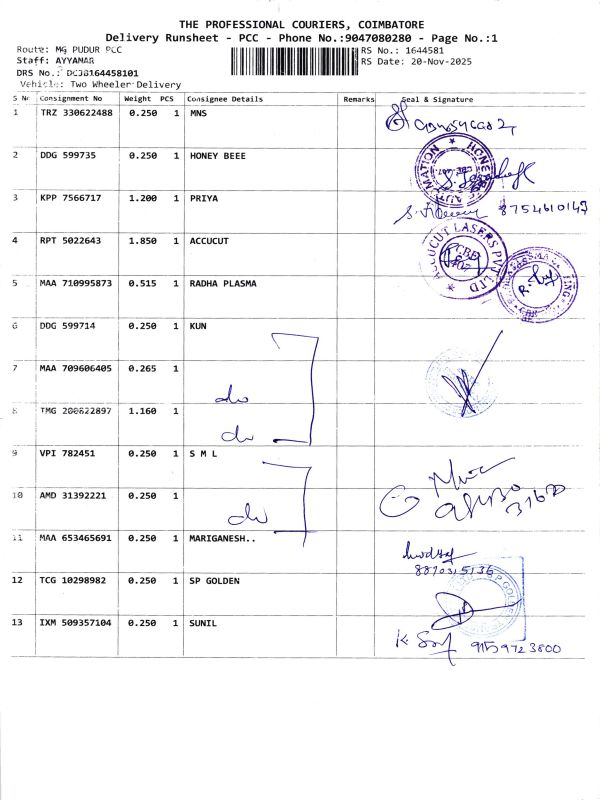 THE PROFESSIONAL COURIERS, COIMBATORE
Delivery Runsheet - PCC - Phone No.:9047080280 - Page No.:1
Route: MG PUDUR PCC
RS No.: 1644581
Staff: AYYAMAR
RS Date: 20-Nov-2025
DRS No.: DCJB164458101
Vehicle: Two Wheeler Delivery
S Nr Consignment No Weight PCS Consignee Details Remarks Seal & Signature
1 TRZ 330622488 0.250 1 MNS
2 DDG 599735 0.250 1 HONEY BEEE
3 KPP 7566717 1.200 1 PRIYA
8754610147
4 RPT 5022643 1.850 1 ACCUCUT
ACCUCUT LASERS PVT LTD
5 MAA 710995873 0.515 1 RADHA PLASMA
6 DDG 599714 0.250 1 KUN
7 MAA 709606405 0.265 1
do
8 TMG 200822897 1.160 1
do
9 VPI 782451 0.250 1 S M L
10 AMD 31392221 0.250 1
do
11 MAA 653465691 0.250 1 MARIGANESH..
8870315136
12 TCG 10298982 0.250 1 SP GOLDEN
13 IXM 509357104 0.250 1 SUNIL
9159723800